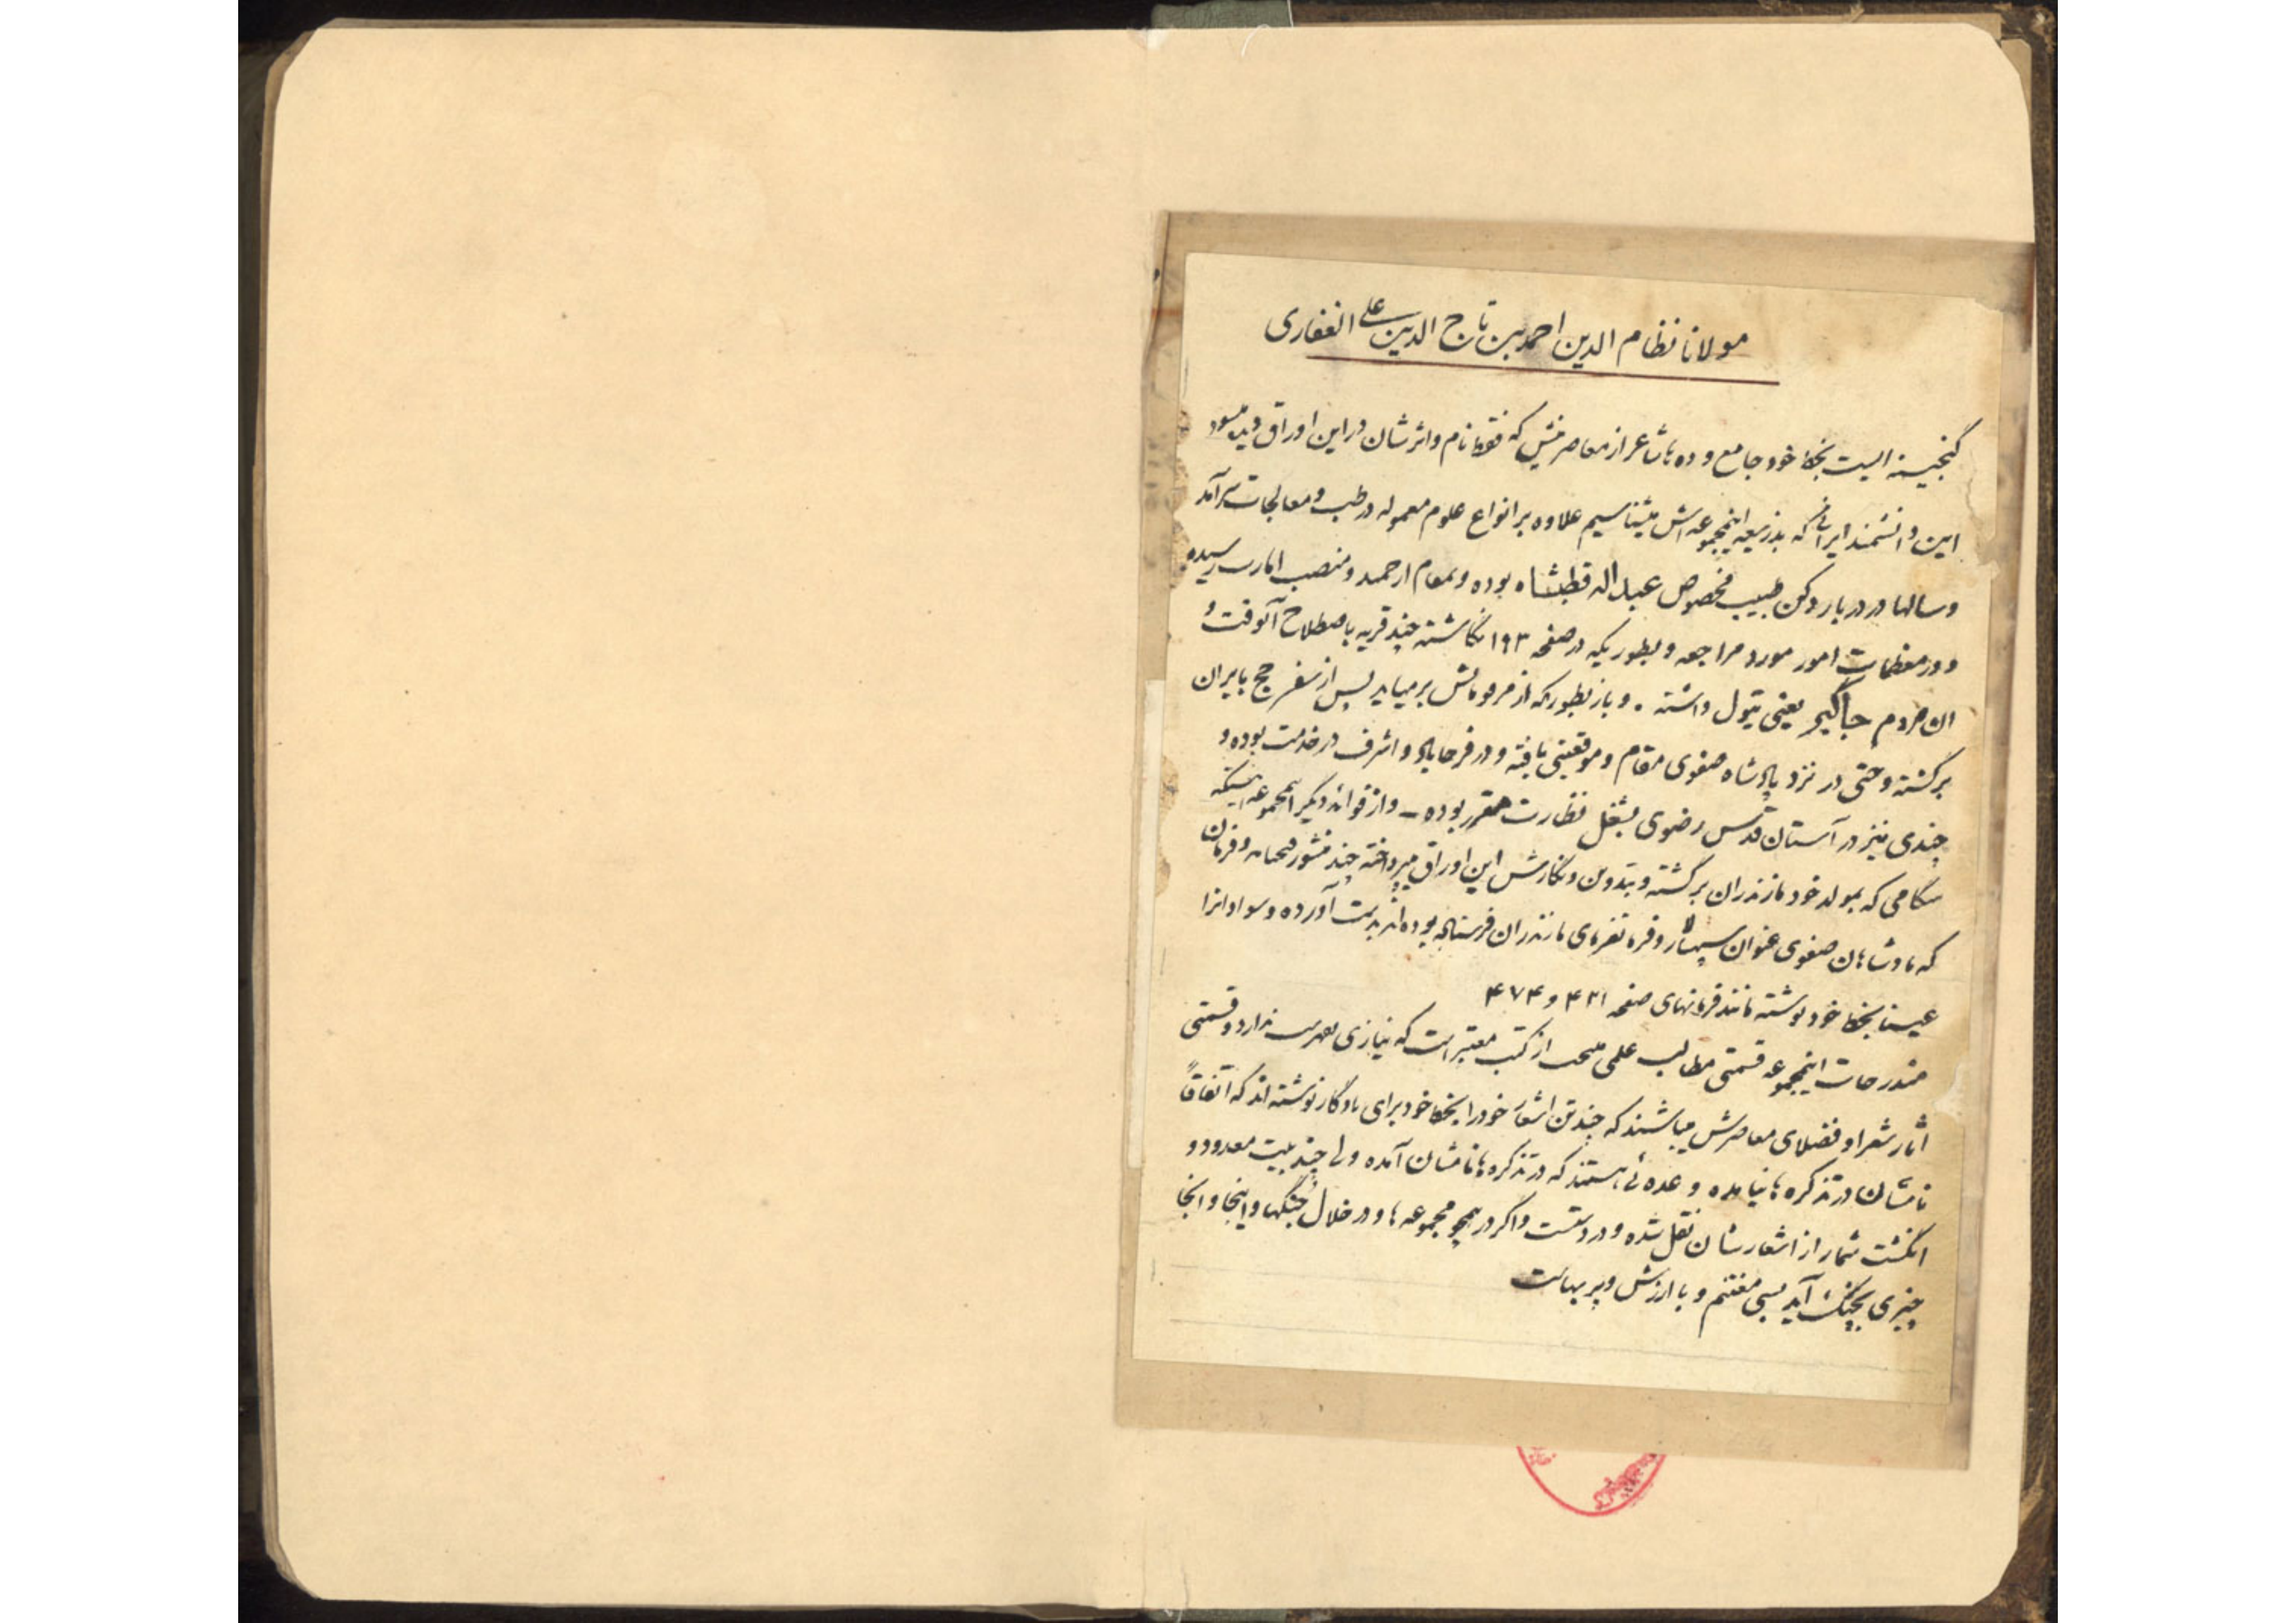 مولانا نظام الدین احمد بن تاج الدین علی الغفاری
گنجینه ایست بخط خود جامع و ده ها شاعر از معاصرینش که فقط نام و اثرشان در این اوراق دیده میشود
این دانشمند ایرانی که بذریعه اینمجموعه اش میشناسیم علاوه بر انواع علوم معموله در طب و معالجات سرآمد
و سالها در دربار دکن طبیب مخصوص عبدالله قطبشاه بوده و بمقام ارجمند و منصب امارت رسیده
و در معظمات امور مورد مراجعه و بطوریکه در صفحه ۱۹۳ نگاشته چند قریه باصطلاح آنوقت و
ان مردم جاگیر یعنی تیول داشته . و باز بطوریکه از مرقوماتش برمیاید پس از سفر حج بایران
برگشته و حتی در نزد پادشاه صفوی مقام و موقعیتی یافته و در فرحاباد و اشرف در خدمت بوده و
چندی نیز در آستان قدس رضوی بشغل نظارت مقرر بوده - و از فوائد دیگر اینمجموعه اینستکه
هنگامی که بمولد خود مازندران برگشته و بتدوین و نگارش این اوراق میپرداخته چند منشور و فرمان
که پادشاهان صفوی عنوان سپهسالار و مازندران فرستاده بوده اند بدست آورده و سواد انرا
عینا بخط خود نوشته مانند فرمانهای صفحه ۴۳۱ و ۴۷۴
مندرجات اینمجموعه قسمتی مطالب علمی منتخب از کتب معتبر است که نیازی بفهرست ندارد و قسمتی
اثار شعرا و فضلای معاصرش میباشند که چند تن اشعار خود را بخط خود برای یادگار نوشته اند که اتفاقاً
نامشان در تذکره ها نیامده و عده ئی هستند که در تذکره ها نامشان آمده ولی چند بیت معدود و
انگشت شمار از اشعارشان نقل شده و در دست و اگر در همچو مجموعه ها و در خلال جنگها و اینجا و انجا
چیزی بچنگ آید بسی مغتنم و با ارزش و پر بهاست